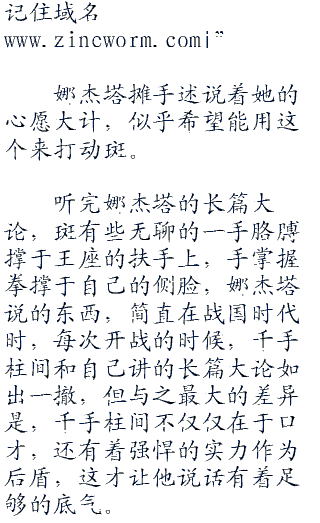 记住域名
www.zincworm.com|”
娜杰塔摊手述说着她的
心愿大计，似乎希望能用这
个来打动斑。
听完娜杰塔的长篇大
论，斑有些无聊的一手胳膊
撑于王座的扶手上，手掌握
拳撑于自己的侧脸，娜杰塔
说的东西，简直在战国时代
时，每次开战的时候，千手
柱间和自己讲的长篇大论如
出一撤，但与之最大的差异
是，千手柱间不仅仅在于口
才，还有着强悍的实力作为
后盾，这才让他说话有着足
够的底气。